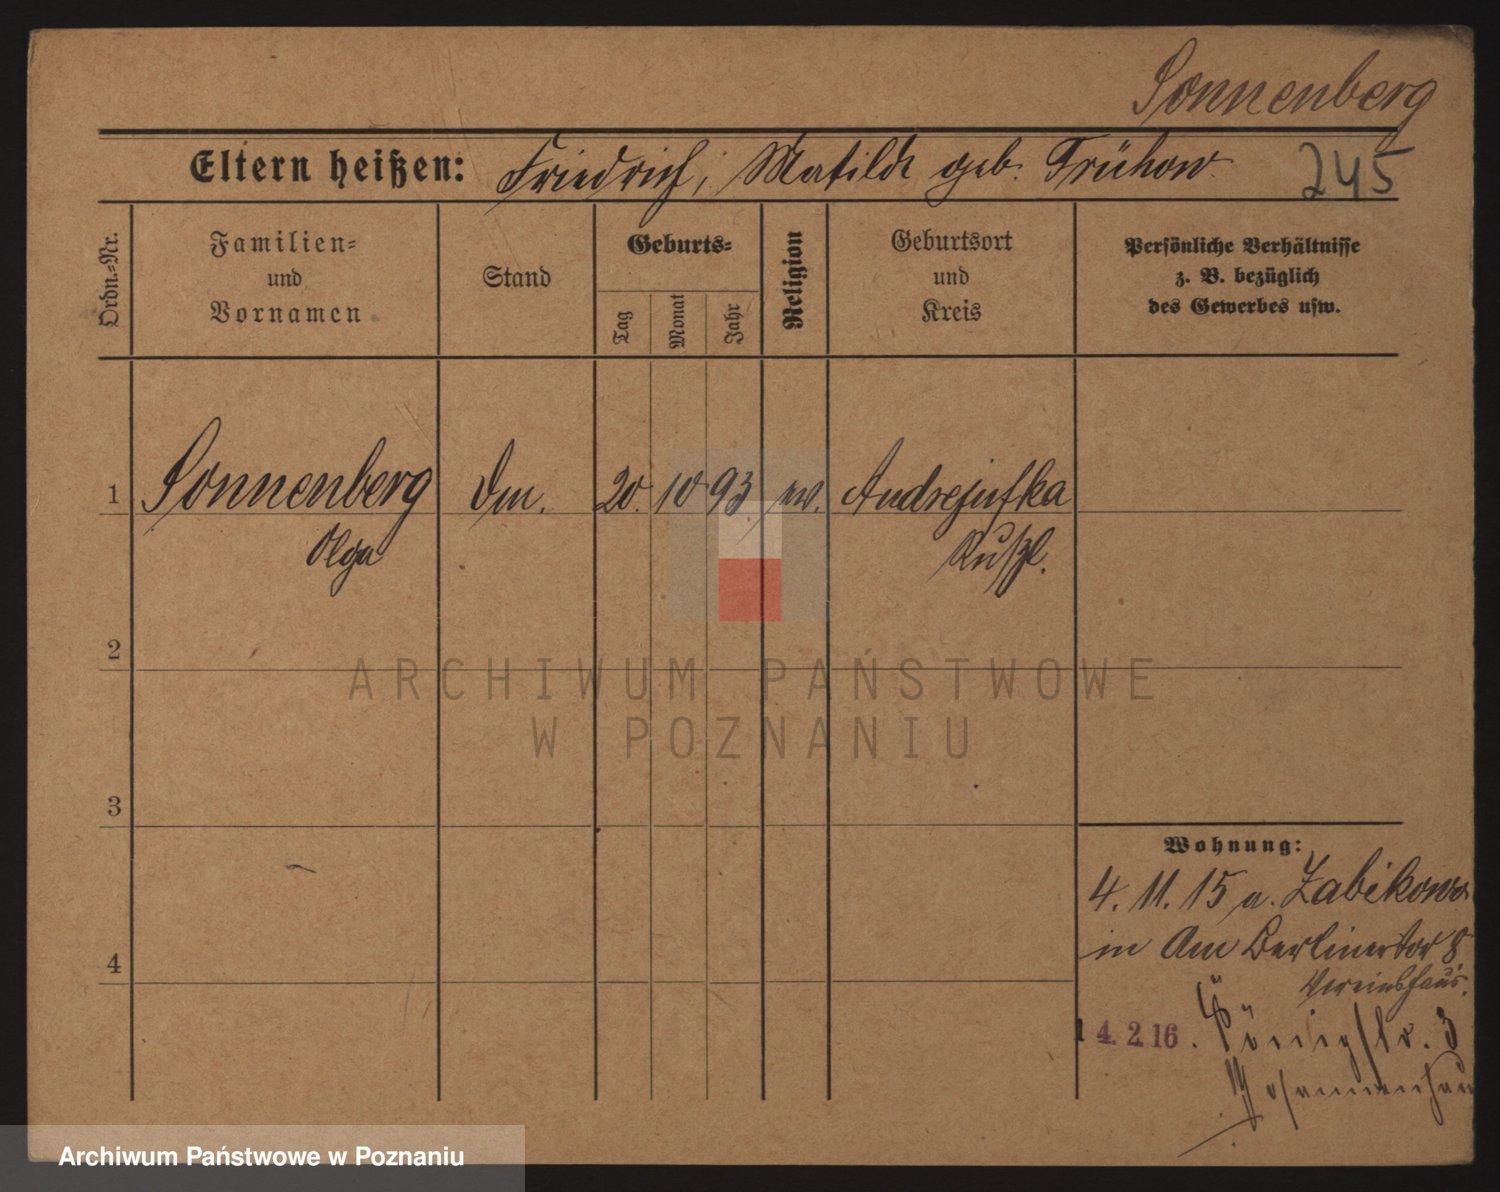 Sonnenberg
Eltern heißen: Friedrich, Matilde geb. Frühow 245
Ordn.=Nr.
Familien=
und
Vornamen
Stand
Geburts=
Tag
Monat
Jahr
Religion
Geburtsort
und
Kreis
Persönliche Verhältnisse
z. B. bezüglich
des Gewerbes usw.
1 Sonnenberg 20. 10 93 ev. Andrejufka
Olga Rußl.
2
ARCHIWUM PAŃSTWOWE
W POZNANIU
3
Wohnung:
4. 11. 15 a. Zabikowo
4 in Am Berlinertor 8
Vereinshaus.
14. 2. 16. 3
Archiwum Państwowe w Poznaniu